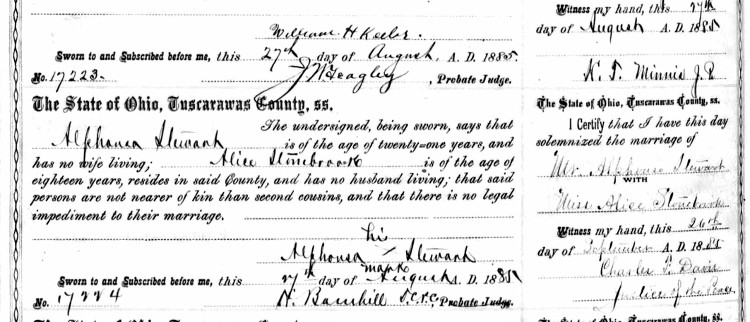 William H Keeler.
Sworn to and Subscribed before me, this 27th day of August, A. D. 1885.
No. 17223. J W Yeagley, Probate Judge.
The State of Ohio, Tuscarawas County, ss.
The undersigned, being sworn, says that
Alphonsa Stewart is of the age of twenty-one years, and
has no wife living; Alice Stonebrook is of the age of
eighteen years, resides in said County, and has no husband living; that said
persons are not nearer of kin than second cousins, and that there is no legal
impediment to their marriage.
his
Alphonsa / Stewart
mark
Sworn to and Subscribed before me, this 27th day of August A. D. 1885
No. 17224 H. Barnhill Probate Judge.
Witness my hand, this 27th
day of August A. D. 1885
N. T. Minnis J. P.
The State of Ohio, Tuscarawas County, ss.
I Certify that I have this day
solemnized the marriage of
Mr. Alphonso Stewart
WITH
Miss Alice Stonebrook
Witness my hand, this 26th
day of September A. D. 1885
Charles F. Davis
Justice of the Peace
The State of Ohio, Tuscarawas County, ss.